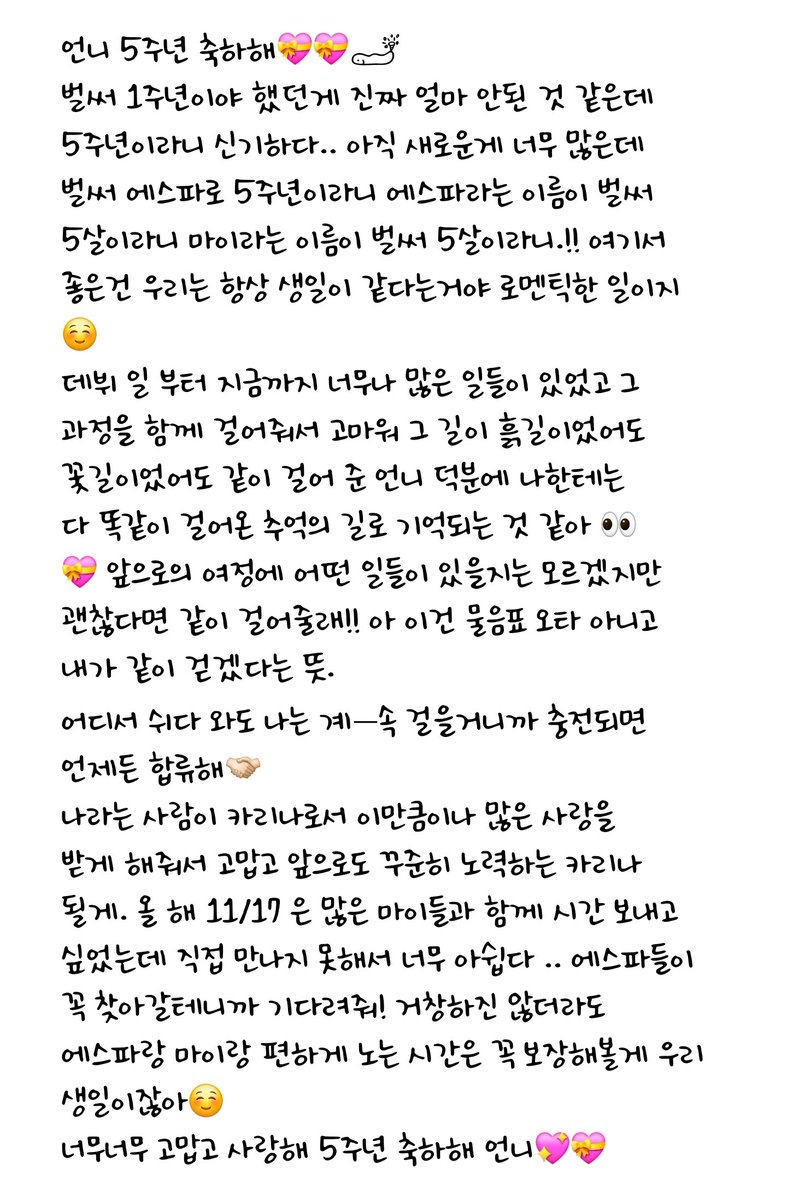 언니 5주년 축하해💝💝
벌써 1주년이야 했던게 진짜 얼마 안된 것 같은데
5주년이라니 신기하다.. 아직 새로운게 너무 많은데
벌써 에스파로 5주년이라니 에스파라는 이름이 벌써
5살이라니 마이라는 이름이 벌써 5살이라니.!! 여기서
좋은건 우리는 항상 생일이 같다는거야 로멘틱한 일이지
☺️
데뷔 일 부터 지금까지 너무나 많은 일들이 있었고 그
과정을 함께 걸어줘서 고마워 그 길이 흙길이었어도
꽃길이었어도 같이 걸어 준 언니 덕분에 나한테는
다 똑같이 걸어온 추억의 길로 기억되는 것 같아 👀
💝 앞으로의 여정에 어떤 일들이 있을지는 모르겠지만
괜찮다면 같이 걸어줄래!! 아 이건 물음표 오타 아니고
내가 같이 걷겠다는 뜻.
어디서 쉬다 와도 나는 계—속 걸을거니까 충전되면
언제든 합류해🤝🏻
나라는 사람이 카리나로서 이만큼이나 많은 사랑을
받게 해줘서 고맙고 앞으로도 꾸준히 노력하는 카리나
될게. 올 해 11/17 은 많은 마이들과 함께 시간 보내고
싶었는데 직접 만나지 못해서 너무 아쉽다 .. 에스파들이
꼭 찾아갈테니까 기다려줘! 거창하진 않더라도
에스파랑 마이랑 편하게 노는 시간은 꼭 보장해볼게 우리
생일이잖아☺️
너무너무 고맙고 사랑해 5주년 축하해 언니💖💝